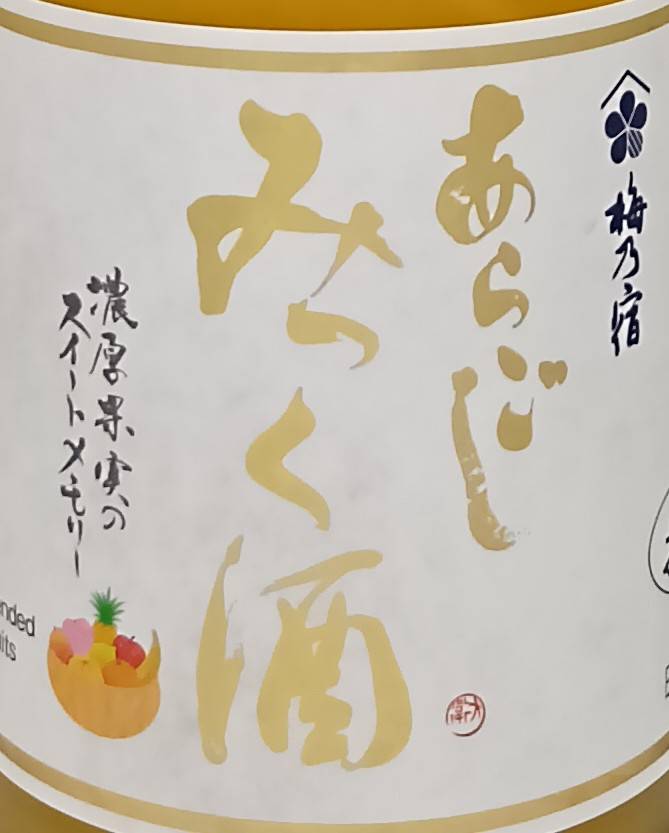 梅乃宿
あらごし
みっく酒
濃厚果実の
スイートメモリー